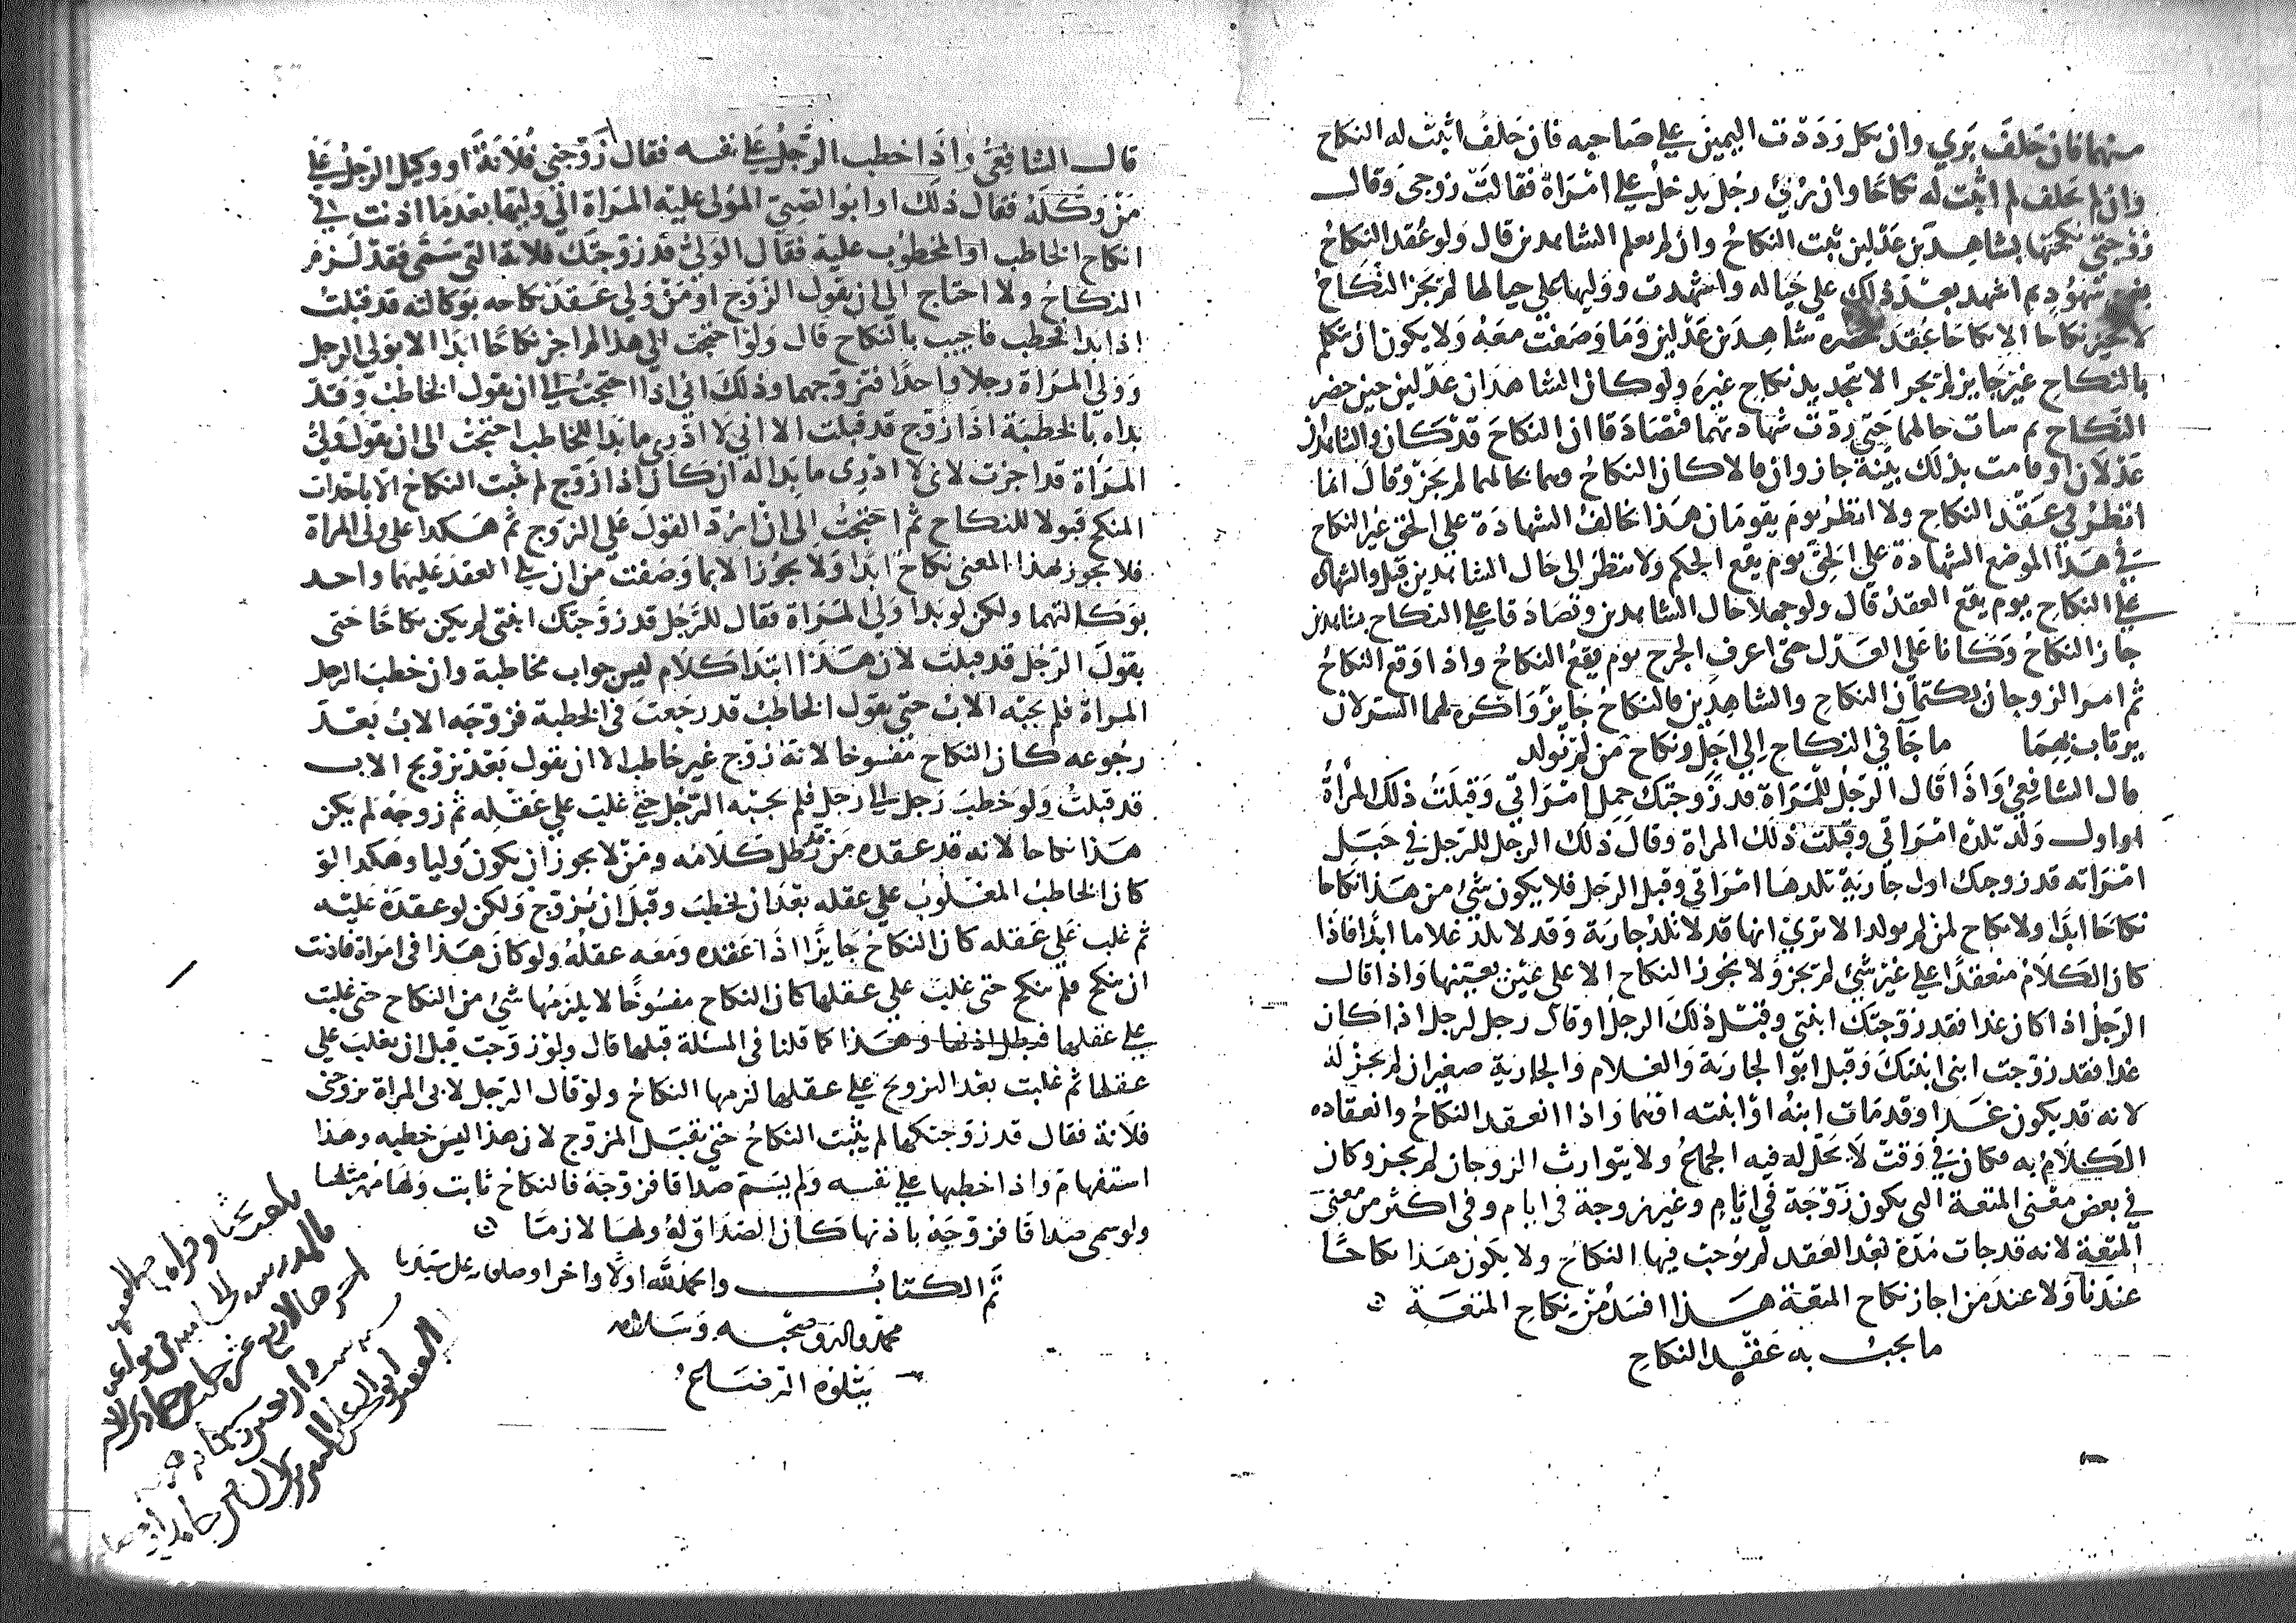 منهما فان حلف بري وان نكل رددت اليمين علي صاحبه فان حلف اثبت له النكاح
وان لم يحلف لم اثبت له نكاحا وان برئ رجل يدخل علي امراة فقالت زوجي وقال
زوجتي نكحتها بشاهدين عدلين ثبت النكاح وان لم يعلم الشاهدين قال ولو عقد النكاح
بغير شهود ثم اشهد بعد ذلك علي حياله واشهدت ووليها علي حيالها لم يجز النكاح
لا يجيز نكاحا الا نكاحا عقد بحضره شاهدين عدلين وما وصفت معه ولا يكون ان تتكلم
بالنكاح غير جايز لم يجز الا بتجديد نكاح غيره ولو كان الشاهدان عدلين حين حضر
النكاح ثم سات حالهما حتي ردت شهادتهما فتصادقا ان النكاح قد كان والشاهدان
عدلان او قامت بذلك بينة جاز وان قالا كان النكاح وهما بحالهما لم يجز وقال انما
انظر في عقد النكاح ولا انظر يوم يقومان هذا مخالف الشهادة علي الحق غير النكاح
في هذا الموضع الشهادة علي الحق يوم يقع الحكم ولا ننظر الى حال الشاهدين قبل والشهادة
علي النكاح يوم يقع العقد قال ولو جهلا حال الشاهدين وتصادقا علي النكاح بشاهدين
جاز النكاح وكانا علي العدل حتى اعرف الجرح يوم يقع النكاح واذا وقع النكاح
ثم امر الزوجان بكتمان النكاح والشاهدين فالنكاح جايز واكره لهما السر لان
يرتاب بهما ما جا في النكاح الي اجل ونكاح من لم يولد
قال الشافعي واذا قال الرجل للمراة قد زوجتك حمل امراتي وقبلت ذلك المراة
او اول ولد تلده امراتي وقبلت ذلك المراة وقال ذلك الرجل للرجل في حبل
امراته قد زوجتك اول جارية تلدها امراتي وقبل الرجل فلا يكون شئ من هذا نكاحا
نكاحا ابدا ولا نكاح لمن لم يولد الا تري انها قد لا تلد جارية وقد لا تلد غلاما ابدا فاذا
كان الكلام منعقدا علي غير شئ لم يجز ولا يجوز النكاح الا على عين بعينها واذا قال
الرجل اذا كان غدا فقد زوجتك ابنتى وقبل ذلك الرجل او قال رجل لرجل اذا كان
غدا فقد زوجت ابنى ابنتك وقبل ابو الجارية والغلام والجارية صغيران لم يجز له
لانه قد يكون غدا وقد مات ابنه او ابنته او هما واذا انعقد النكاح وانعقاده
الكلام به فكان في وقت لا يحل له فيه الجماع ولا يتوارث الزوجان لم يجز وكان
في بعض معنى المتعة التي يكون زوجة في ايام وغير زوجة في ايام وفي اكثر من معنى
المتعة لانه قد جات مدة بعد العقد لم يوجب فيها النكاح ولا يكون هذا نكاحا
عندنا ولا عند من اجاز نكاح المتعة هذا افسد من نكاح المتعة
ما يجب به عقد النكاح
قال الشافعي واذا خطب الرجل علي نفسه فقال زوجني فلانة او وكيل الرجل علي
من وكله فقال ذلك او ابو الصبي المولى عليه المراة الي وليها بعدما اذنت في
انكاح الخاطب او المخطوب عليه فقال الولي قد زوجتك فلانة التي سمى فقد لزم
النكاح ولا احتاج الي ان يقول الزوج او من ولي عقد نكاحه بوكالته قد قبلت
اذا بدا فخطب فاجيب بالنكاح قال ولو احتجت الي هذا لم اجز نكاحا ابدا الا بولي الرجل
وولي المراة رجلا واحدا فتزوجهما وذلك اني اذا احتجت الي ان يقول الخاطب وقد
بداه بالخطبة اذا زوج قد قبلت الا اني لا ادري ما بدا للخاطب احتجت الى ان يقول ولي
المراة قد اجزت لاني لا ادرى ما بدا له ان كان اذا زوج لم يثبت النكاح الا باحداث
المنكح قبولا للنكاح ثم احتجت الى ان ارد القول علي الزوج ثم هكذا على ولي المراة
فلا يجوز بهذا المعنى نكاح ابدا ولا يجوز الا بما وصفت من ان يلي العقد عليهما واحد
بوكالتهما ولكن لو بدا ولي المراة فقال للرجل قد زوجتك ابنتي لم يكن نكاحا حتى
يقول الرجل قد قبلت لان هذا ابتدا كلام ليس جواب مخاطبة وان خطب الرجل
المراة فلم يجبه الاب حتى يقول الخاطب قد رجعت في الخطبة فزوجه الاب بعد
رجوعه كان النكاح مفسوخا لانه زوج غير خاطب الا ان يقول بعد تزويج الاب
قد قبلت ولو خطب رجل الي رجل فلم يجبه الرجل حتي غلب علي عقله ثم زوجه لم يكن
هذا نكاحا لانه قد عقده من قد بطل كلامه ومن لا يجوز ان يكون وليا وهكذا لو
كان الخاطب المغلوب علي عقله بعد ان يخطب وقبل ان يزوج ولكن لو عقده عليه
ثم غلب علي عقله كان النكاح جايزا اذا عقده ومعه عقله ولو كان هذا في امراة فاذنت
ان تنكح فلم تنكح حتى غلب علي عقلها كان النكاح مفسوخا لا يلزمها شئ من النكاح حتى غلبت
علي عقلها فبطل اذنها وهذا كما قلنا في المسئلة قبلها قال ولو زوجت قبل ان تغلب علي
عقلها ثم غلبت بعد التزويج علي عقلها لزمها النكاح ولو قال الرجل لابي المراة تزوجني
فلانة فقال قد زوجتكها لم يثبت النكاح حتى يقبل المزوج لان هذا ليس خطبه وهذا
استفهام واذا خطبها علي نفسه ولم يسم صداقا فزوجه فالنكاح ثابت ولها مهر مثلها
ولو سمى صداقا فزوجه باذنها كان الصداق له ولها لازما
تم الكتاب والحمد لله اولا واخرا وصلى الله على سيدنا
محمد واله وصحبه وسلامه
يتلوه
بلغت بحثا وقراه
بالمدرسه